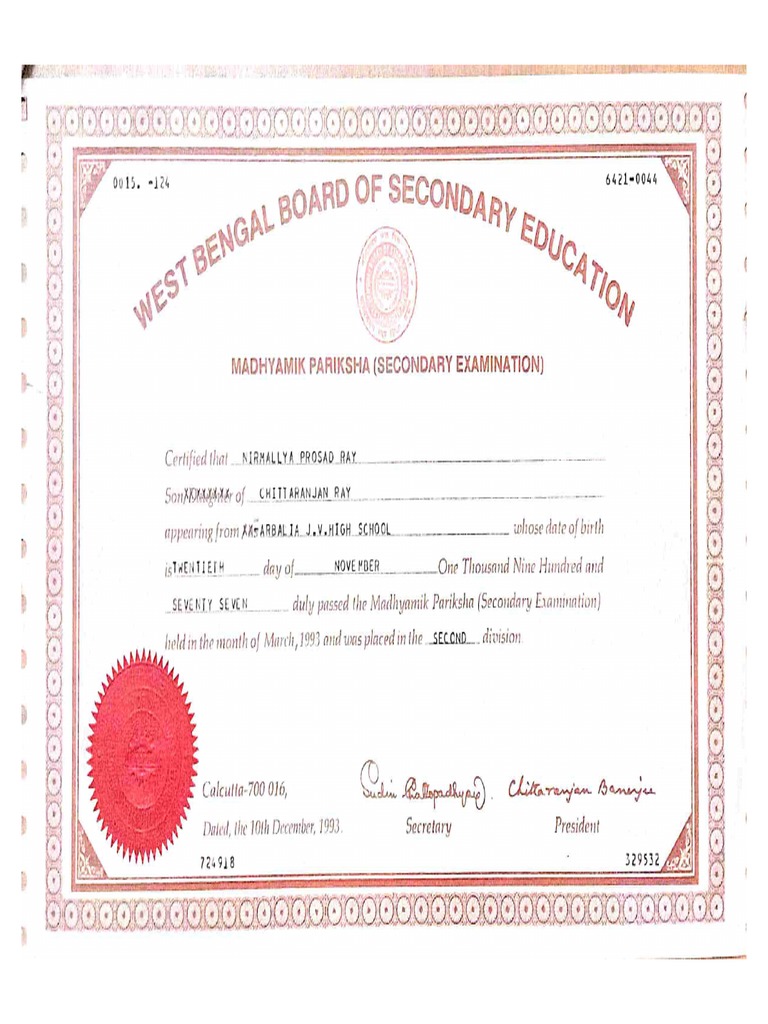 0015. -124
6421-0044
WEST BENGAL BOARD OF SECONDARY EDUCATION
MADHYAMIK PARIKSHA (SECONDARY EXAMINATION)
Certified that NIRMALLYA PROSAD RAY
Son/Daughter of CHITTARANJAN RAY
appearing from XX-ARBALIA J.V.HIGH SCHOOL whose date of birth
is TWENTIETH day of NOVEMBER One Thousand Nine Hundred and
SEVENTY SEVEN duly passed the Madhyamik Pariksha (Secondary Examination)
held in the month of March, 1993 and was placed in the SECOND division.
Calcutta-700 016,
Chittaranjan Banerjee
Dated, the 10th December, 1993.
Secretary
President
724918
329532